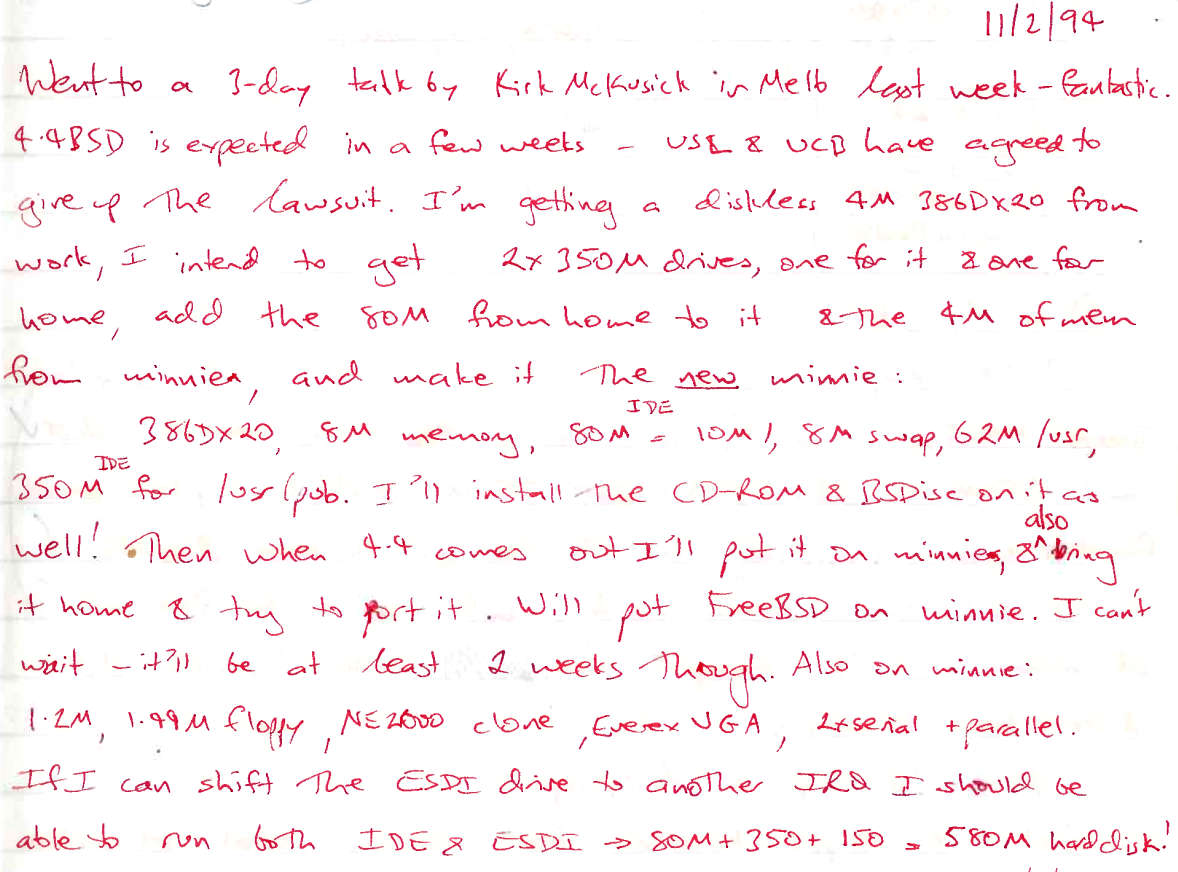 11/2/94
Went to a 3-day talk by Kirk McKusick in Melb last week - fantastic.
4.4BSD is expected in a few weeks - USL & UCB have agreed to
give up the lawsuit. I'm getting a diskless 4M 386DX20 from
work, I intend to get 2x 350M drives, one for it & one for
home, add the 80M from home to it & the 4M of mem
from minnie, and make it the new minnie :
IDE
386DX20, 8M memory, 80M = 10M /, 8M swap, 62M /usr,
IDE
350M for /usr/pub. I'll install the CD-ROM & BSDisc on it as
also
well! Then when 4.4 comes out I'll put it on minnie, & ^ bring
it home & try to port it. Will put FreeBSD on minnie. I can't
wait - it'll be at least 2 weeks though. Also on minnie:
1.2M, 1.44M floppy, NE2000 clone, Everex VGA, 2xserial + parallel.
If I can shift the ESDI drive to another IRQ I should be
able to run both IDE & ESDI → 80M + 350 + 150 = 580M hard disk!